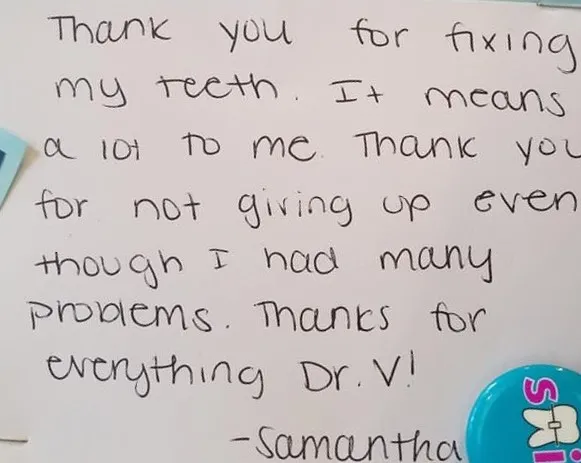 Thank you for fixing
my teeth. It means
a lot to me. Thank you
for not giving up even
though I had many
problems. Thanks for
everything Dr. V!
-Samantha